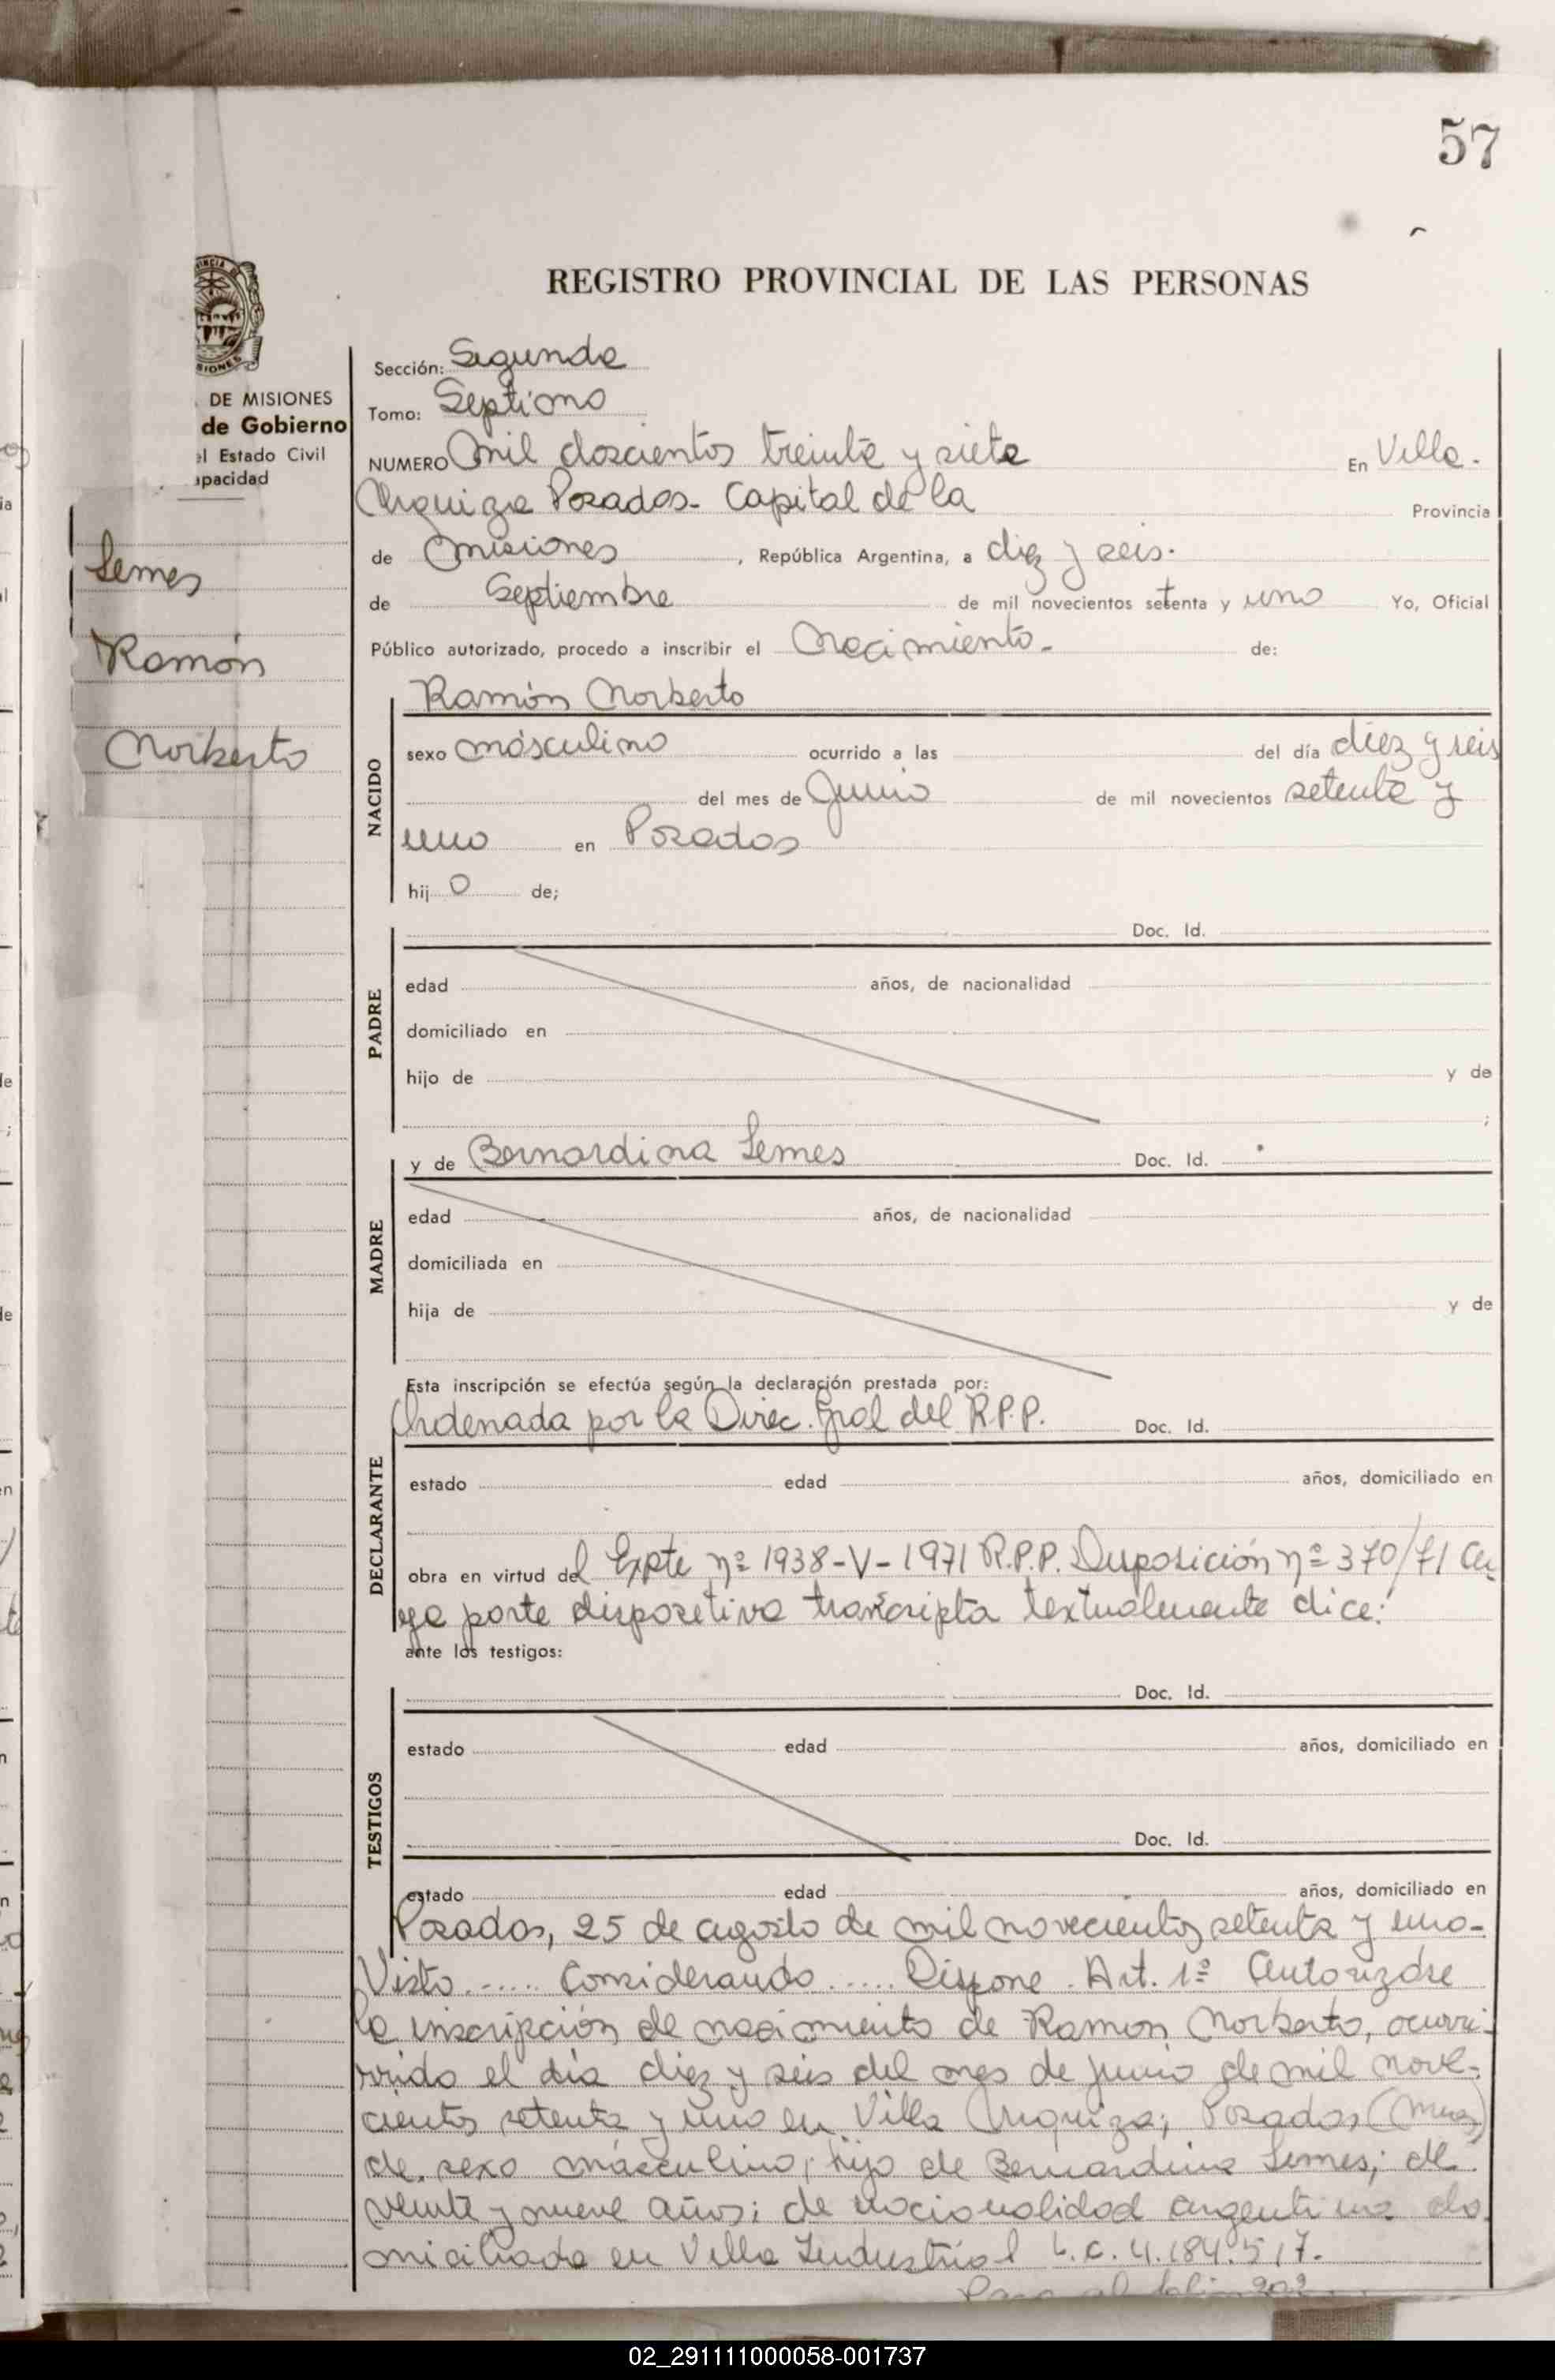 57
REGISTRO PROVINCIAL DE LAS PERSONAS
DE MISIONES
de Gobierno
el Estado Civil
apacidad
Lemes
Ramón
Norberto
Sección: Segunda
Tomo: Septimo
NUMERO Mil doscientos treinta y siete En Villa.
Urquiza Posadas. Capital de la Provincia
de Misiones, República Argentina, a diez y seis.
de Septiembre de mil novecientos setenta y uno Yo, Oficial
Público autorizado, procedo a inscribir el Nacimiento. de:
NACIDO
Ramón Norberto
sexo másculino ocurrido a las del día diez y seis
del mes de Junio de mil novecientos setenta y
uno en Posadas
hijo de;
PADRE
Doc. Id.
edad años, de nacionalidad
domiciliado en
hijo de y de
;
MADRE
y de Bernardina Lemes Doc. Id.
edad años, de nacionalidad
domiciliada en
hija de y de
DECLARANTE
Esta inscripción se efectúa según la declaración prestada por:
Ordenada por la Direc. Gral del R.P.P. Doc. Id.
estado edad años, domiciliado en
obra en virtud del Expte nº 1938-V-1971 R.P.P. Disposición nº 370/71 Cu
ya parte dispositiva transcripta textualmente dice:
ante los testigos:
TESTIGOS
Doc. Id.
estado edad años, domiciliado en
Doc. Id.
estado edad años, domiciliado en
Posadas, 25 de agosto de mil novecientos setenta y uno-
Visto...... Considerando ..... Dispone. Art. 1º Autorizase
la inscripción de nacimiento de Ramon Norberto, ocurri-
rrido el día diez y seis del mes de junio de mil nove-
cientos setenta y uno en Villa Urquiza; Posadas (Mnes)
de sexo másculino; hijo de Bernardina Lemes; de
veinte y nueve años; de nacionalidad argentina do
miciliada en Villa Industrial L.C. 4.184.517.
Pasa al folio 202
02_291111000058-001737